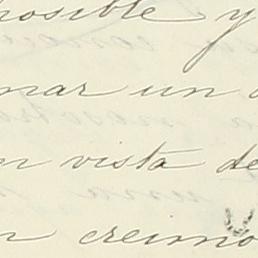 posible y
mar un
en vista de
n creimo